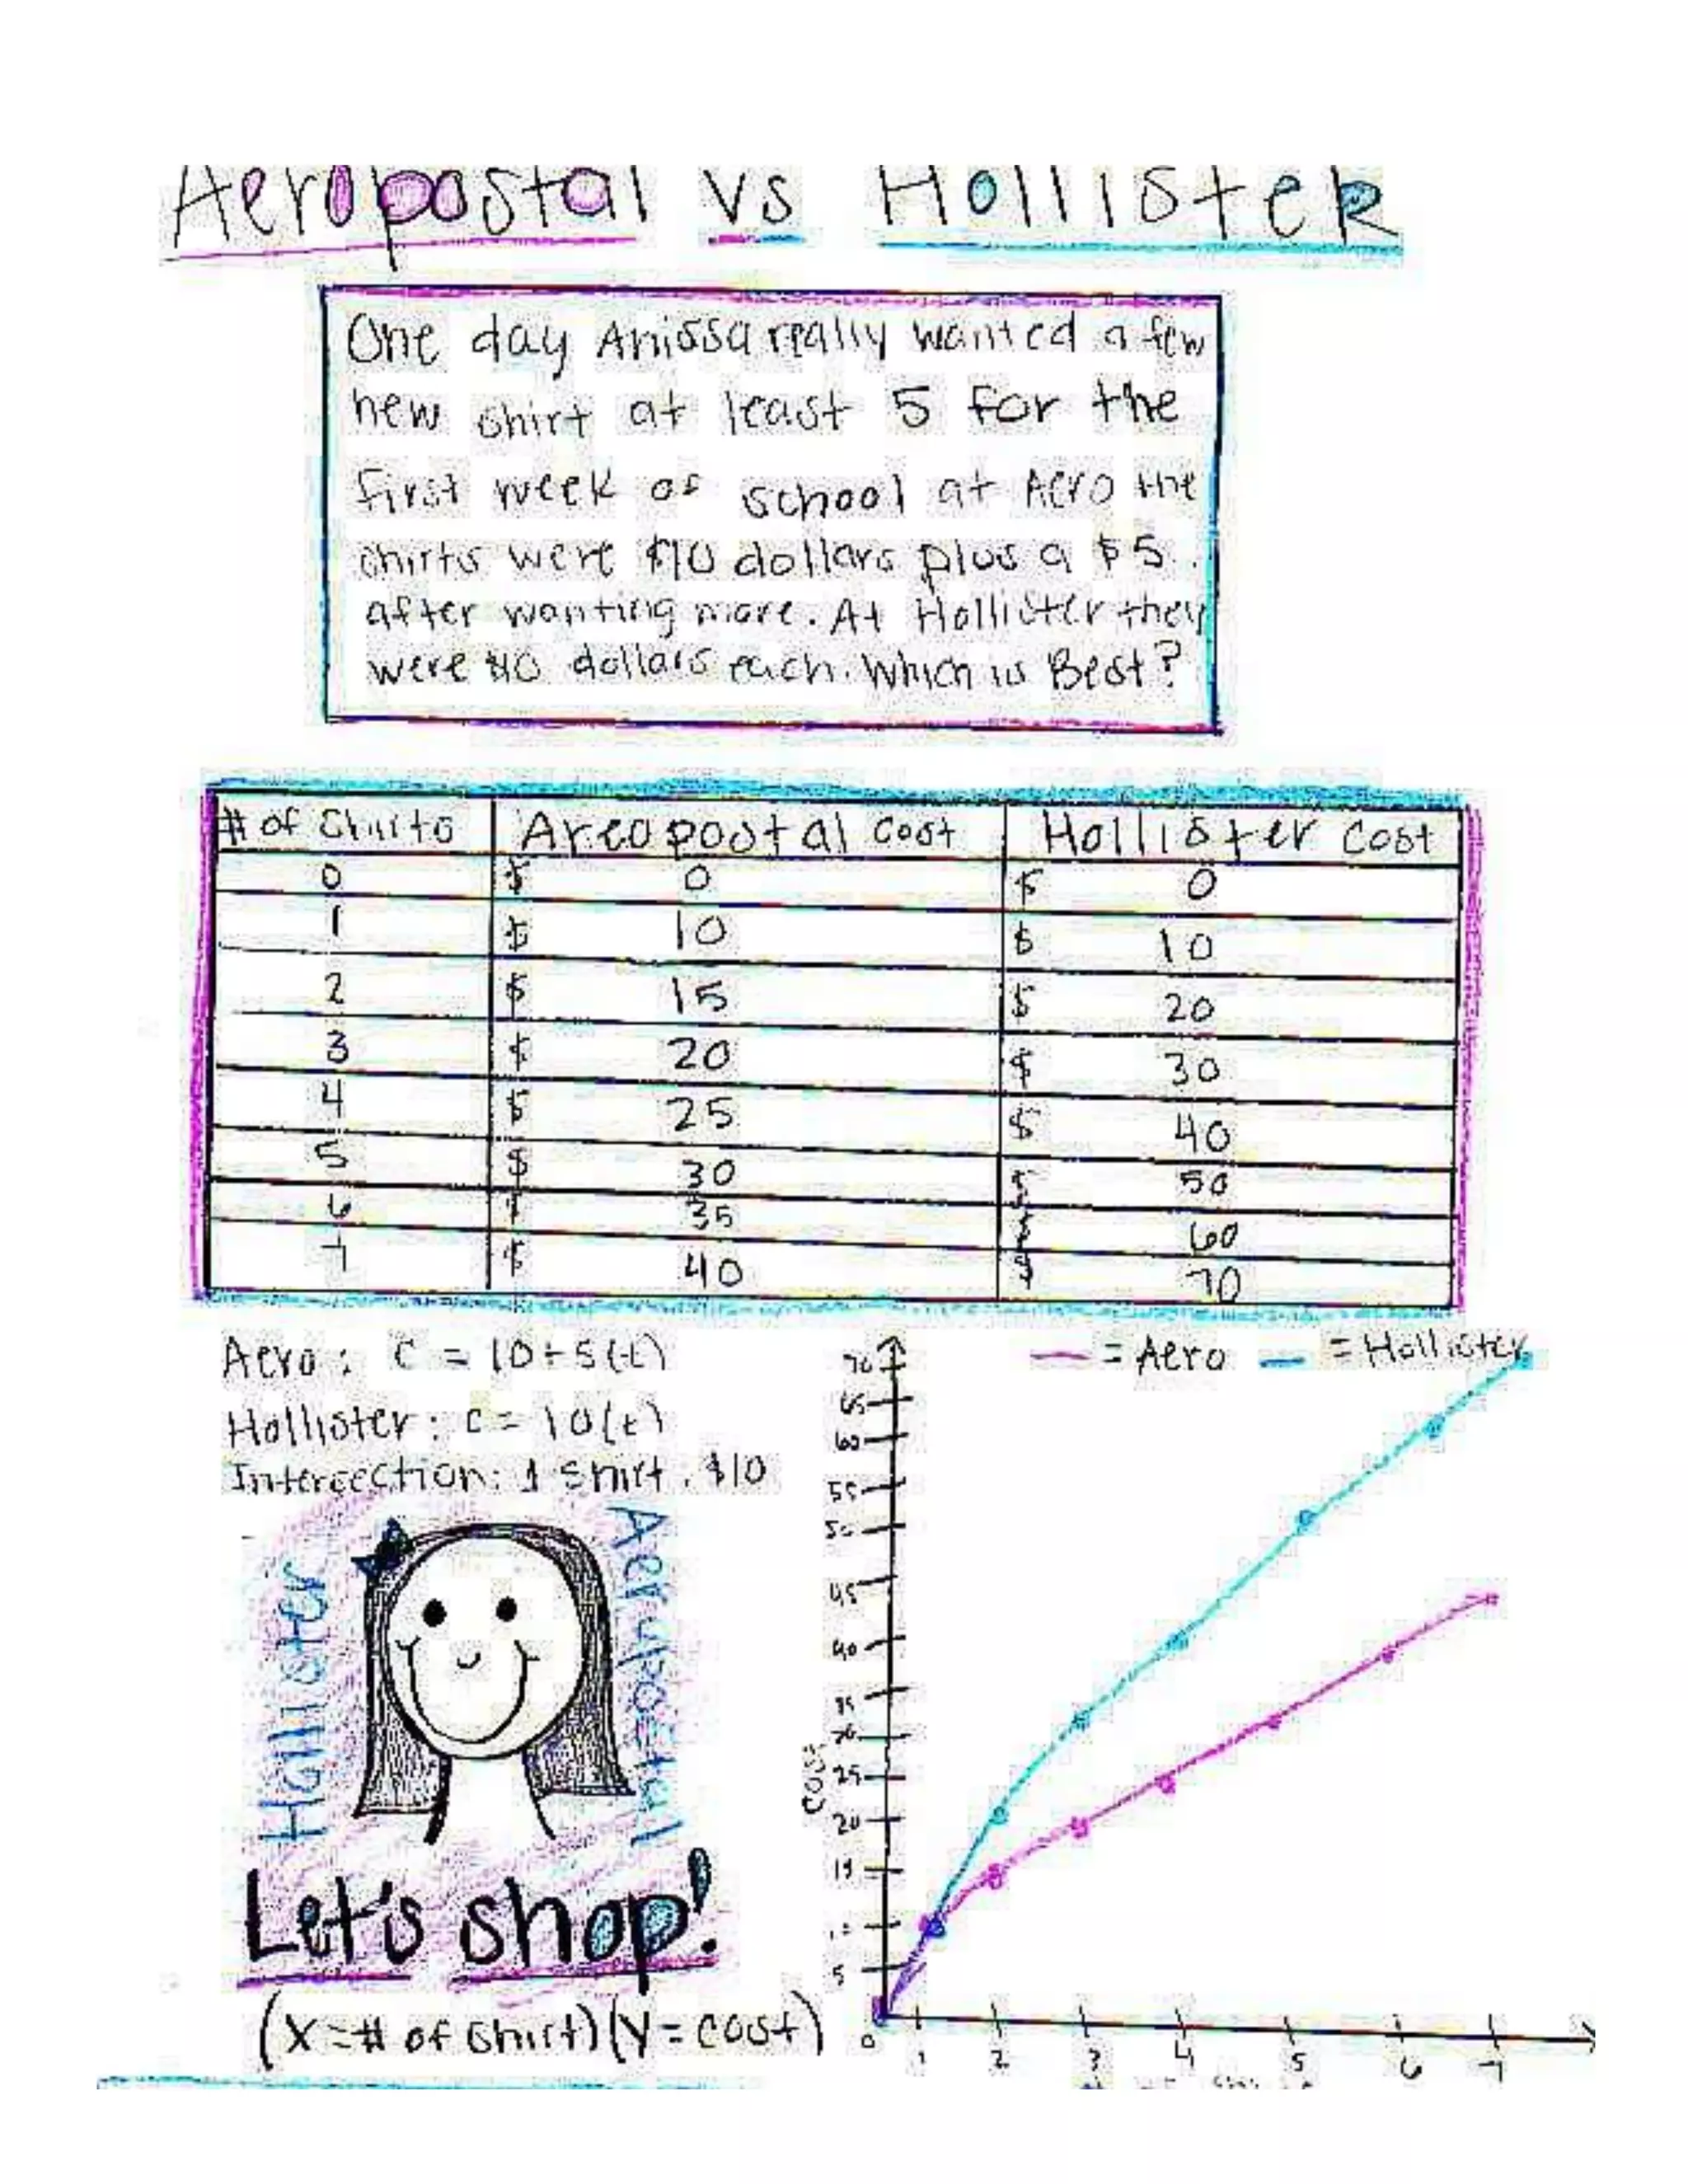 Aeropostal vs Hollister
One day Anissa really wanted a few
new shirt at least 5 for the
first week of school at Aero the
shirts were $10 dollars plus a $5.
after wanting more. At Hollister they
were $10 dollars each. Which is Best?
# of Shirts Areopostal Cost Hollister Cost
0 $ 0 $ 0
1 $ 10 $ 10
2 $ 15 $ 20
3 $ 20 $ 30
4 $ 25 $ 40
5 $ 30 $ 50
6 $ 35 $ 60
7 $ 40 $ 70
Aero: C = 10+5(t)
Hollister: C = 10(t)
Intersection: 1 Shirt. $10
Hollister
Aeropostal
Let's shop!
(X=# of shirt)(Y=cost)
= Aero = Hollister
70
65
60
55
50
45
40
35
30
25
20
15
5
0
cost
1 2 3 4 5 6 7